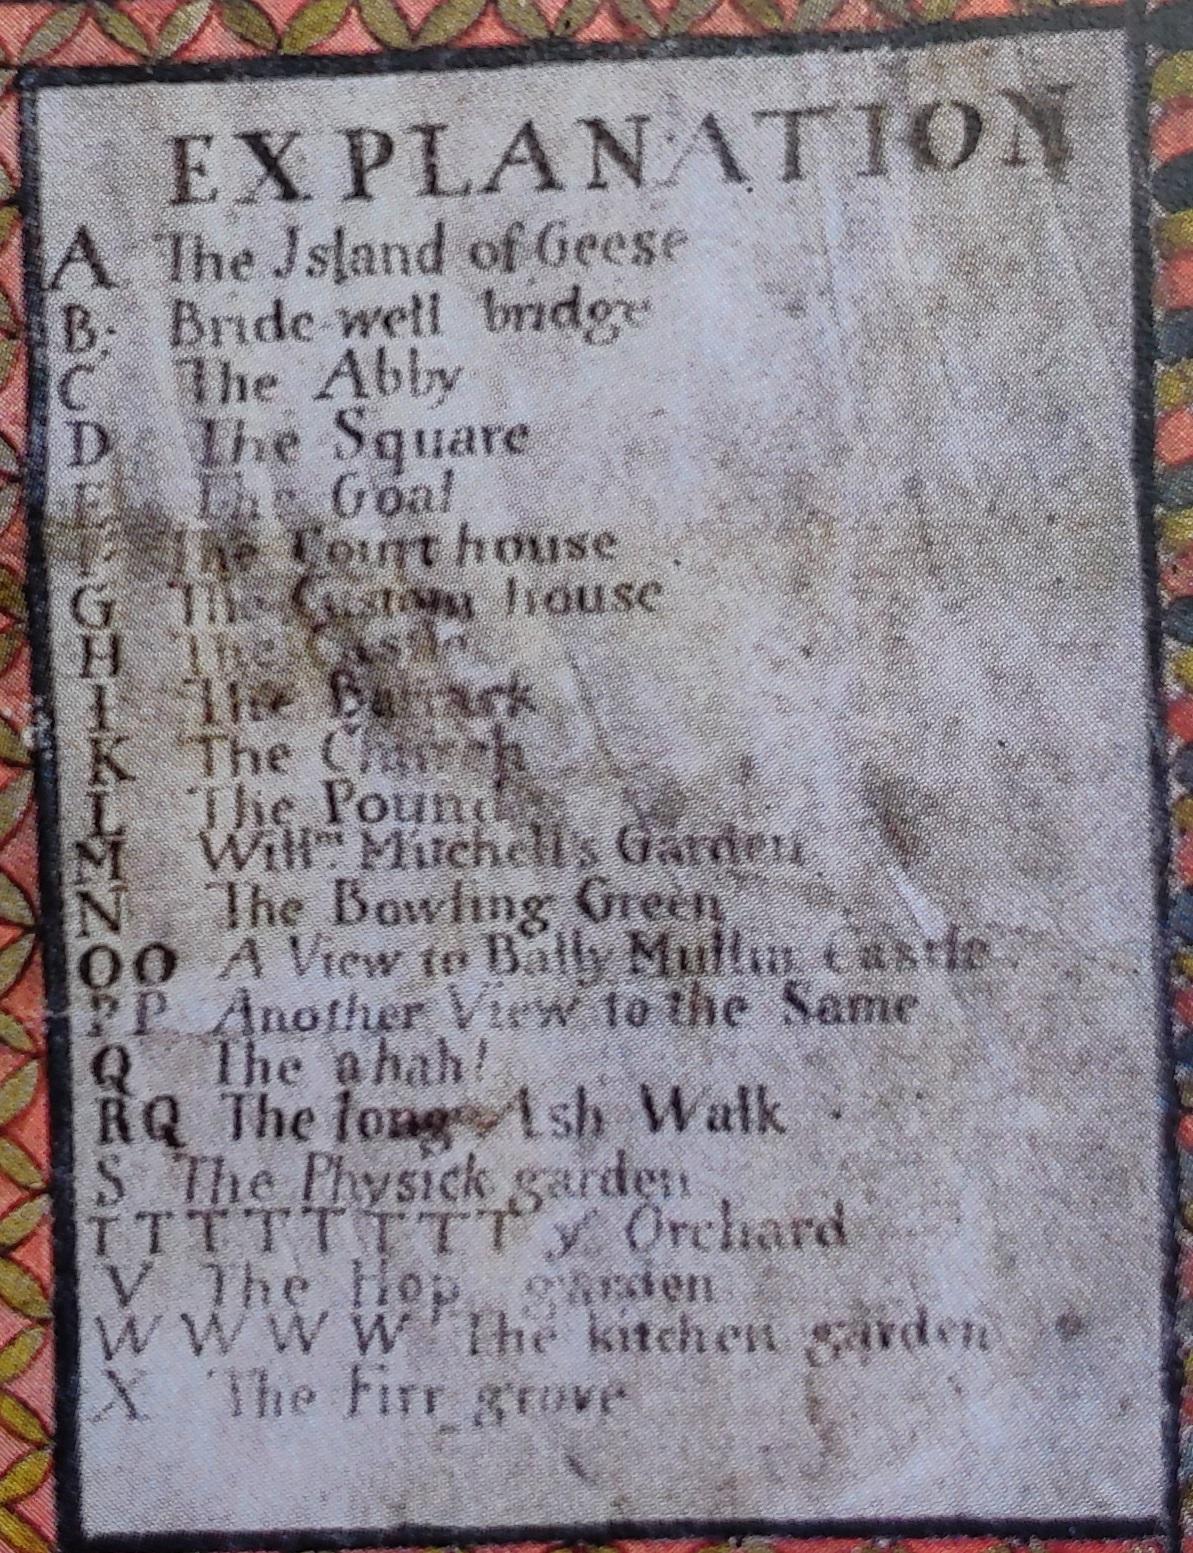 EXPLANATION
A The Jsland of Geese
B: Bride-well bridge
C The Abby
D The Square
E The Goal
F The Court house
G The Custom house
H The Castle
I The Barrack
K The Church
L The Pound
M Willm. Mitchell's Garden
N The Bowling Green
OO A View to Bally Mullin Castle
PP Another View to the Same
Q The ahah!
RQ The long Ash Walk
S The Physick garden
TTTTTTTT ye Orchard
V The Hop garden
W W W W The kitchen garden
X The Firr grove